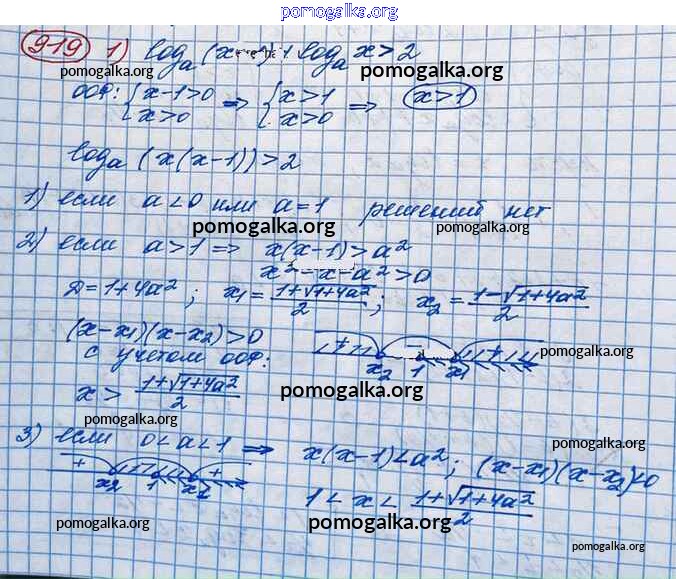 pomogalka.org
919 1) logₐ(x-1)+logₐx>2
pomogalka.org pomogalka.org
ООФ: {x-1>0 ⇒ {x>1 ⇒ x>1
x>0 x>0
pomogalka.org
logₐ(x(x-1))>2
1) если a<0 или a=1 решений нет
pomogalka.org pomogalka.org
2) если a>1 ⇒ x(x-1)>a²
x²-x-a²>0
D=1+4a²; x₁=(1+√1+4a²)/2; x₂=(1-√1+4a²)/2
(x-x₁)(x-x₂)>0
+ - +
с учетом ООФ: x₂ 1 x₁
pomogalka.org
x>(1+√1+4a²)/2
pomogalka.org
pomogalka.org
3) если 0<a<1 ⇒ x(x-1)<a²; (x-x₁)(x-x₂)<0
+ +
x₂ 1
pomogalka.org
1<x<(1+√1+4a²)/2
pomogalka.org pomogalka.org
pomogalka.org